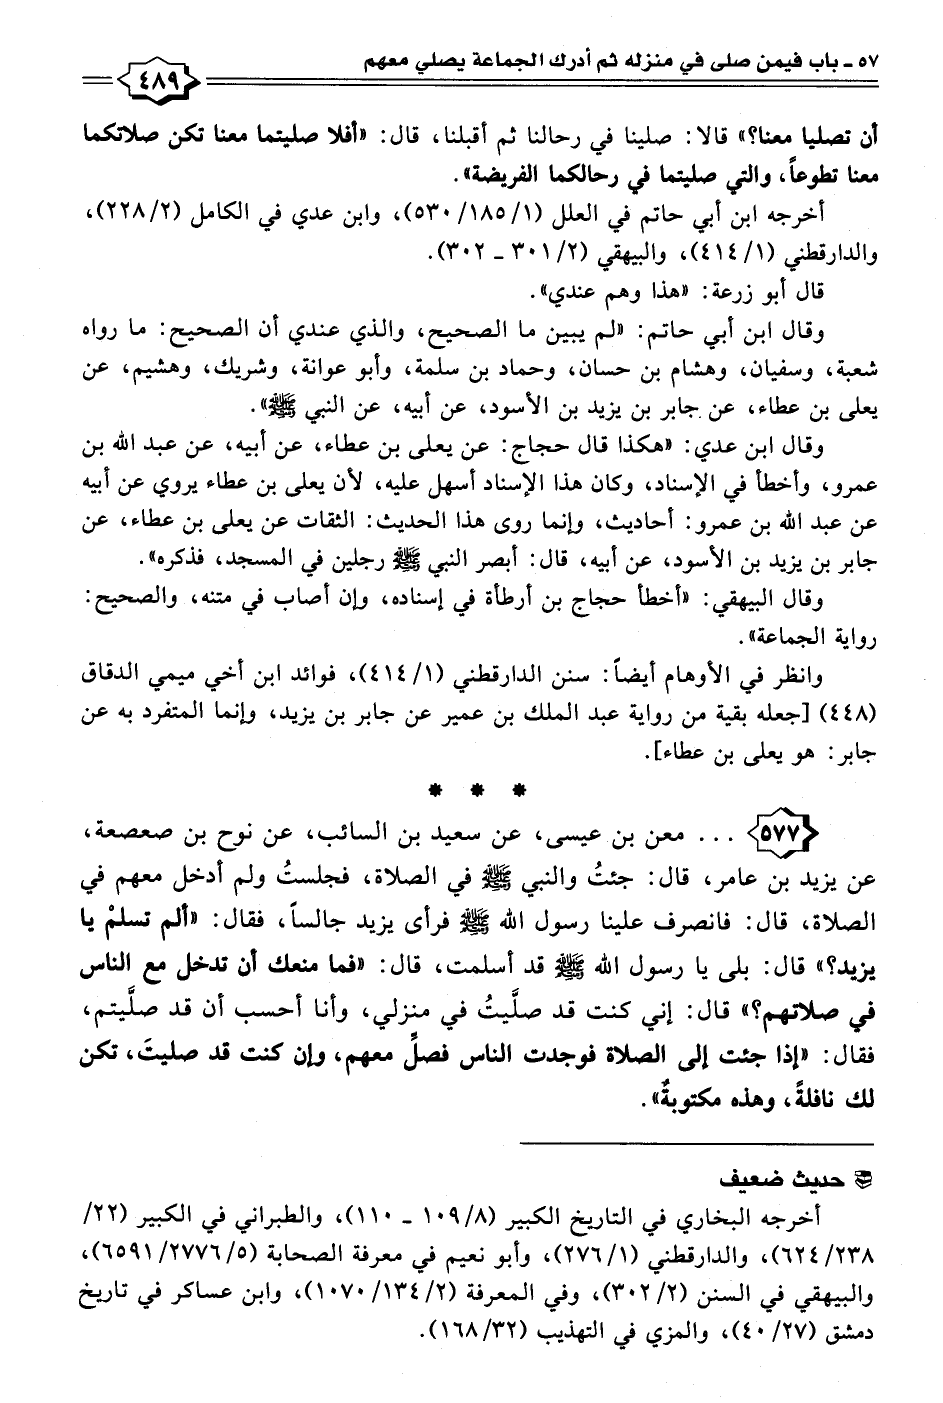 ٥٧ ـ باب فيمن صلى في منزله ثم أدرك الجماعة يصلي معهم
٤٨٩
أن تصليا معنا؟» قالا: صلينا في رحالنا ثم أقبلنا، قال: «أفلا صليتما معنا تكن صلاتكما
معنا تطوعاً، والتي صليتما في رحالكما الفريضة».
أخرجه ابن أبي حاتم في العلل (١/ ١٨٥/ ٥٣٠)، وابن عدي في الكامل (٢/ ٢٢٨)،
والدارقطني (١/ ٤١٤)، والبيهقي (٢/ ٣٠١ ـ ٣٠٢).
قال أبو زرعة: «هذا وهم عندي».
وقال ابن أبي حاتم: «لم يبين ما الصحيح، والذي عندي أن الصحيح: ما رواه
شعبة، وسفيان، وهشام بن حسان، وحماد بن سلمة، وأبو عوانة، وشريك، وهشيم، عن
يعلى بن عطاء، عن جابر بن يزيد بن الأسود، عن أبيه، عن النبي ﷺ».
وقال ابن عدي: «هكذا قال حجاج: عن يعلى بن عطاء، عن أبيه، عن عبد الله بن
عمرو، وأخطأ في الإسناد، وكان هذا الإسناد أسهل عليه، لأن يعلى بن عطاء يروي عن أبيه
عن عبد الله بن عمرو: أحاديث، وإنما روى هذا الحديث: الثقات عن يعلى بن عطاء، عن
جابر بن يزيد بن الأسود، عن أبيه، قال: أبصر النبي ﷺ رجلين في المسجد، فذكره».
وقال البيهقي: «أخطأ حجاج بن أرطأة في إسناده، وإن أصاب في متنه، والصحيح:
رواية الجماعة».
وانظر في الأوهام أيضاً: سنن الدارقطني (١/ ٤١٤)، فوائد ابن أخي ميمي الدقاق
(٤٤٨) [جعله بقية من رواية عبد الملك بن عمير عن جابر بن يزيد، وإنما المتفرد به عن
جابر: هو يعلى بن عطاء].
* * *
٥٧٧ . . . معن بن عيسى، عن سعيد بن السائب، عن نوح بن صعصعة،
عن يزيد بن عامر، قال: جئتُ والنبي ﷺ في الصلاة، فجلستُ ولم أدخل معهم في
الصلاة، قال: فانصرف علينا رسول الله ﷺ فرأى يزيد جالساً، فقال: «ألم تسلمْ يا
يزيد؟» قال: بلى يا رسول الله ﷺ قد أسلمت، قال: «فما منعك أن تدخل مع الناس
في صلاتهم؟» قال: إني كنت قد صلَّيتُ في منزلي، وأنا أحسب أن قد صلَّيتم،
فقال: «إذا جئت إلى الصلاة فوجدت الناس فصلِّ معهم، وإن كنت قد صليتَ، تكن
لك نافلةً، وهذه مكتوبةٌ».
حديث ضعيف
أخرجه البخاري في التاريخ الكبير (٨/ ١٠٩ ـ ١١٠)، والطبراني في الكبير (٢٢/
٢٣٨/ ٦٢٤)، والدارقطني (١/ ٢٧٦)، وأبو نعيم في معرفة الصحابة (٥/ ٢٧٧٦/ ٦٥٩١)،
والبيهقي في السنن (٢/ ٣٠٢)، وفي المعرفة (٢/ ١٣٤/ ١٠٧٠)، وابن عساكر في تاريخ
دمشق (٢٧/ ٤٠)، والمزي في التهذيب (٣٢/ ١٦٨).